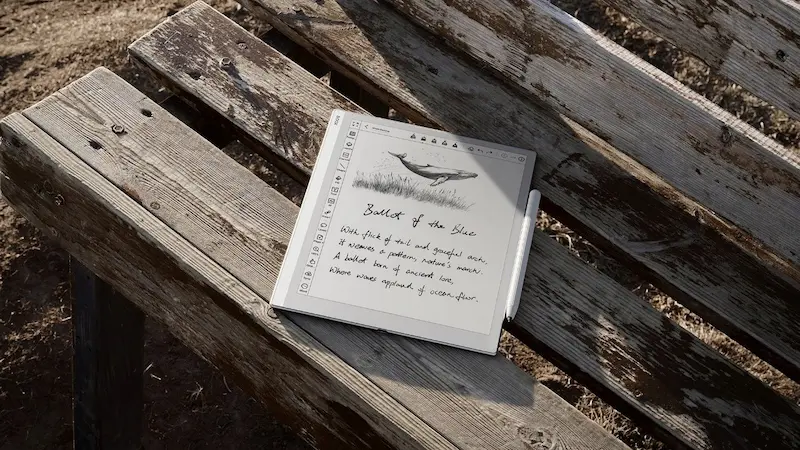 Ballet of the Blue
With flick of tail and graceful arch,
It weaves a pattern, nature's march.
A ballet born of ancient lore,
Where waves applaud of ocean floor.